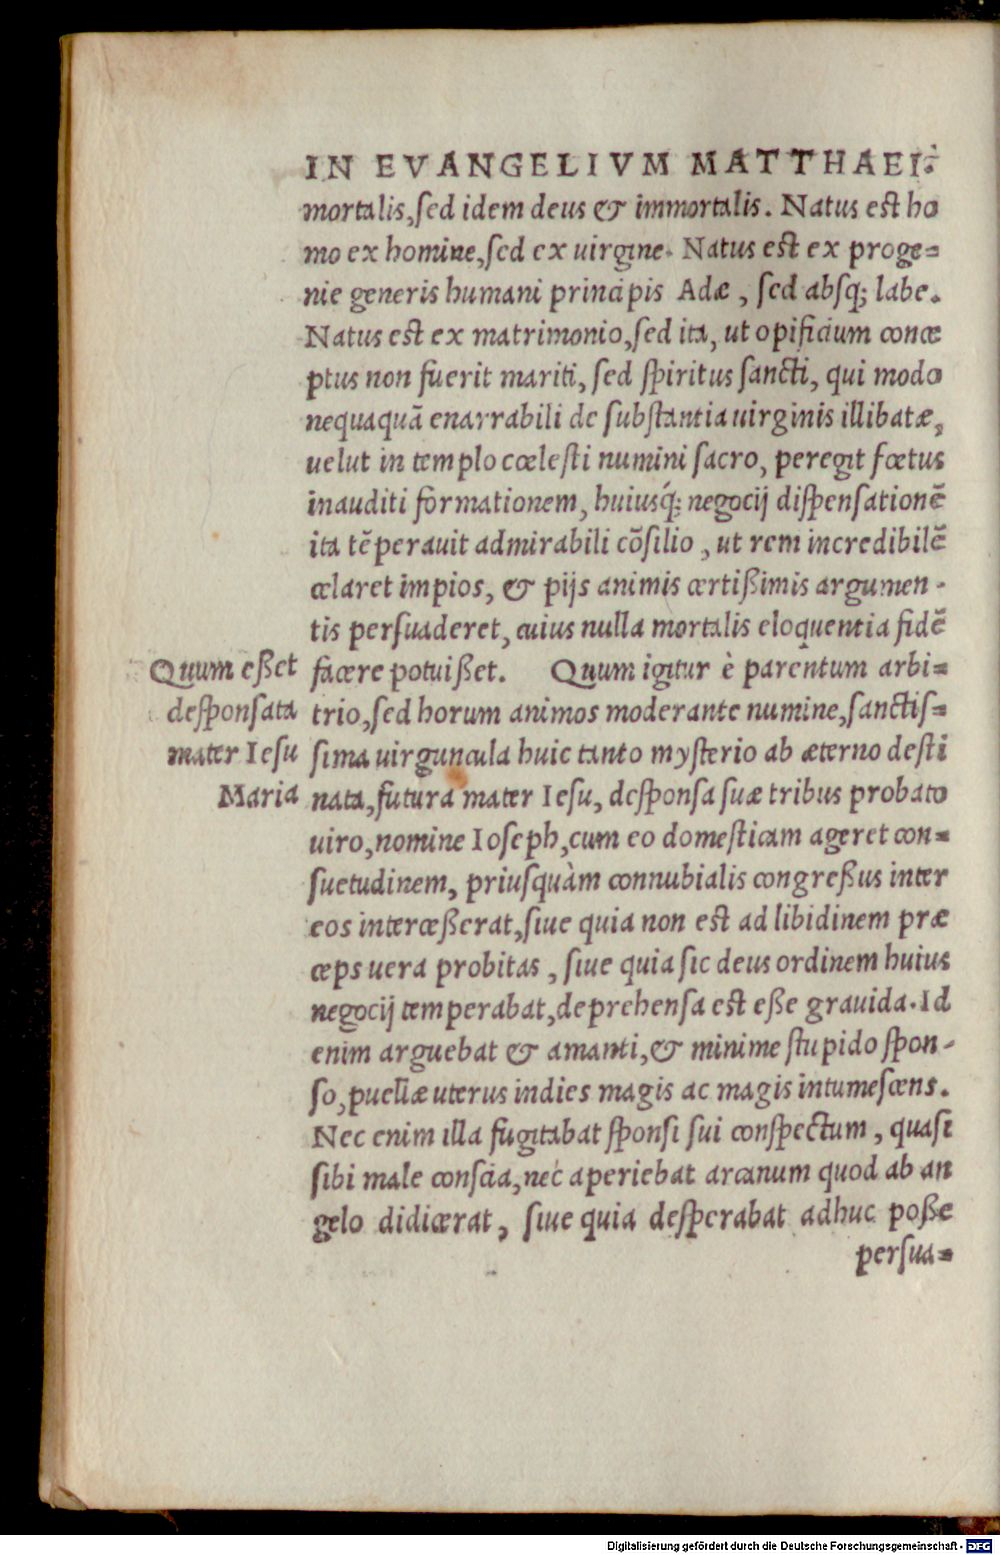 IN EVANGELIVM MATTHAEI.
mortalis, sed idem deus & immortalis. Natus est ho
mo ex homine, sed ex uirgine. Natus est ex proge=
nie generis humani principis Adæ, sed absq; labe.
Natus est ex matrimonio, sed ita, ut opificium conce
ptus non fuerit mariti, sed spiritus sancti, qui modo
nequaquã enarrabili de substantia uirginis illibatæ,
uelut in templo cœlesti numini sacro, peregit fœtus
inauditi formationem, huiusq́; negocij dispensationẽ
ita tẽperauit admirabili cõsilio, ut rem incredibilẽ
celaret impios, & pijs animis certißimis argumen-
tis persuaderet, cuius nulla mortalis eloquentia fidẽ
Quum eßet
desponsata
mater Iesu
Maria
facere potuißet. Quum igitur è parentum arbi=
trio, sed horum animos moderante numine, sanctis=
sima uirguncula huic tanto mysterio ab æterno desti
nata, futura mater Iesu, desponsa suæ tribus probato
uiro, nomine Ioseph, cum eo domesticam ageret con=
suetudinem, priusquàm connubialis congreßus inter
eos interceßerat, siue quia non est ad libidinem præ
ceps uera probitas, siue quia sic deus ordinem huius
negocij temperabat, deprehensa est eße grauida. Id
enim arguebat & amanti, & minime stupido spon-
so, puellæ uterus indies magis ac magis intumescens.
Nec enim illa fugitabat sponsi sui conspectum, quasi
sibi male conscia, nec aperiebat arcanum quod ab an
gelo didicerat, siue quia desperabat adhuc poße
persua=
Digitalisierung gefördert durch die Deutsche Forschungsgemeinschaft - DFG